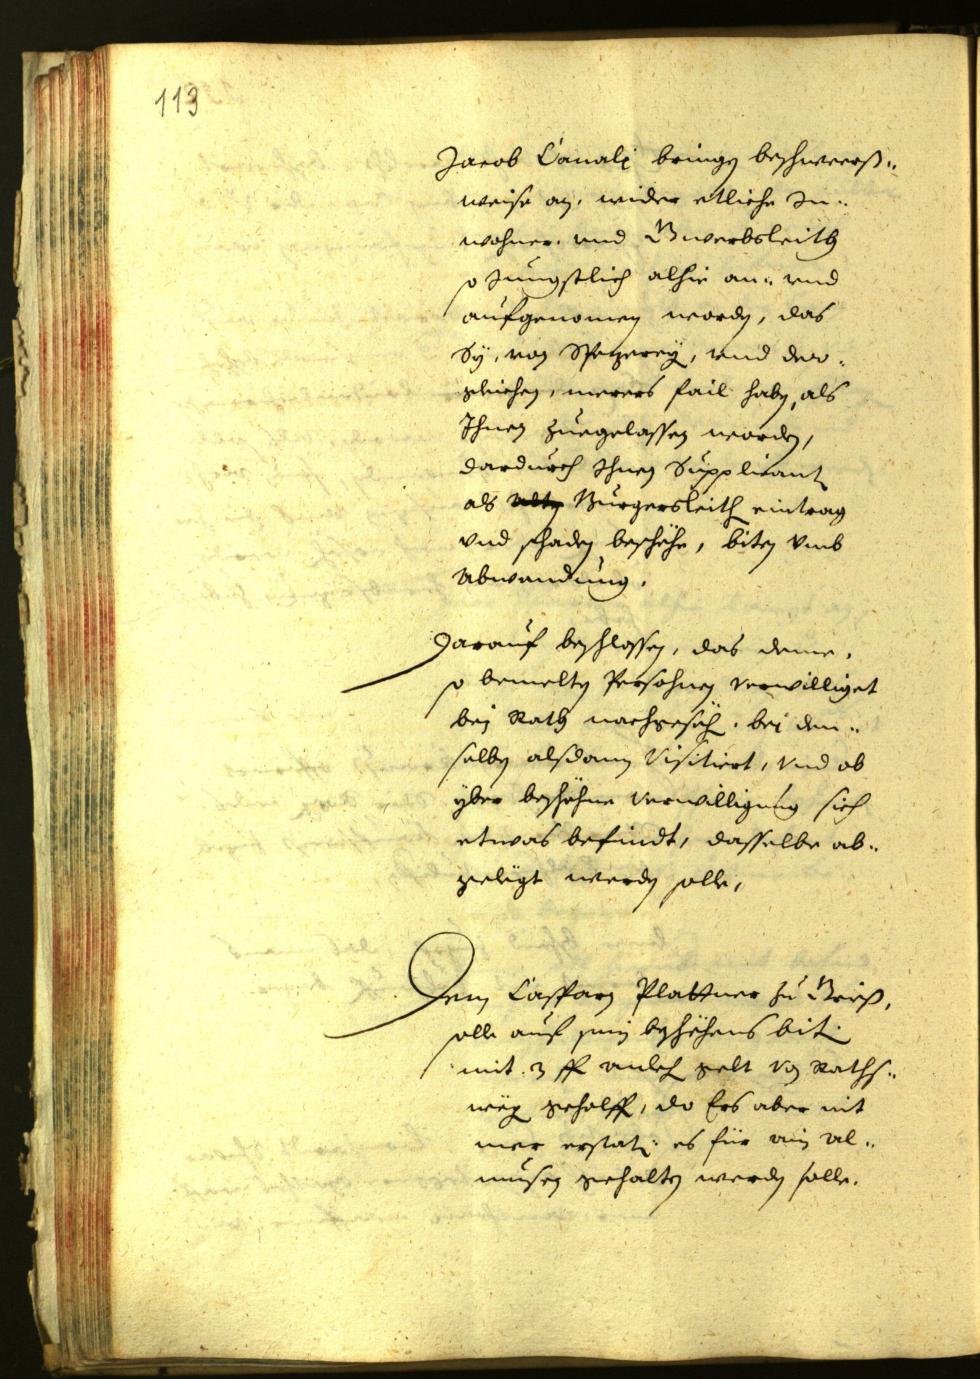 113
Jacob Canali bringen beschweerß-
weise an, wider etliche In-
wohner, und Gwerbsleith
so Jüngstlich alhie an- und
aufgenomen worden, das
Sÿ, von Spezereÿ, und der-
gleichen, merers fail haben, als
Ihnen zuegelassen worden,
dardurch Ihnen Supplicant
als Burgersleith eintrag
und schaden beschehe, biten umb
Abwendung.
Darauf beschlossen, das deme,
so bemelten Persohnen verwilliget
bei Rath nachgesech, bei den-
selben alsdann Visitiert, und ob
yber beschehne verwilligung sich
etwas befindt, dasselbe ab-
gelegt werden solle,
Dem Casparn Plattner zu Grieß,
solle auf sein beschehens bit
mit 3 ff anlech gelt von Raths-
weg geholffen, do Ers aber nit
mer erstat, es für ain Al-
musen gehalten werden solle.